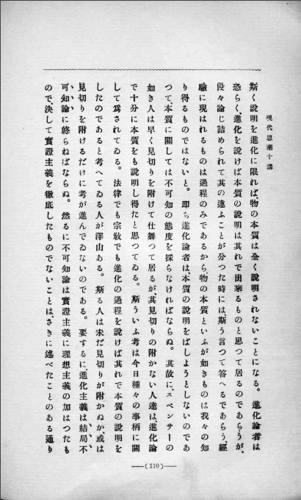 現代思潮十講
斯く說明を進化に限れば物の本質は全く說明されないことになる。進化論者は
恐らく進化を說けば本質の說明は其れで出來るものと思つて居るのであらうが、
段々論じ詰められて其の違ふことが分つた時には、斯う言つて答へるであらう、經
驗に現はれるものは過程のみであるから物の本質といふが如きものは我々の知
り得るものではないと。卽ち進化論者は本質の說明をばしようとしないのであ
つて、本質に關しては不可知の態度を採らなければならぬ。其故にスペンサーの
如き人は早く見切りを附けて仕舞つて居るが、其見切りの附かない人達は進化論
で十分に本質をも說明し得たと思つてゐる。斯ういふ考は今日種々の事柄に關
して爲されてゐる。法律でも宗敎でも進化の過程を說けば其れで本質の說明を
したのであると考へてゐる人が澤山ある。斯る人は未だ見切りが附かぬか、或は
見切りを附けるだけに考が進んでゐないのである。要するに進化主義は、結局不
可知論に終らねばならぬ。然るに不可知論は實證主義に理想主義の加はつたも
ので、決して實證主義を徹底したものでないことは、さきに述べたことのある通り
(110)